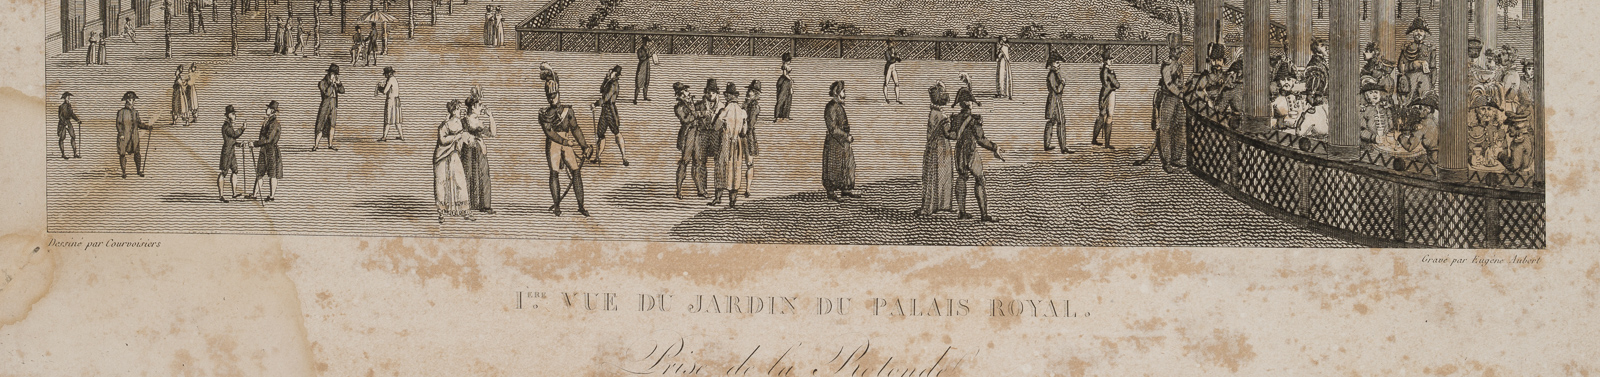 Dessiné par Courvoisiers
Gravé par Eugène Aubert
1.ERE VUE DU JARDIN DU PALAIS ROYAL.
Prise de la Rotonde